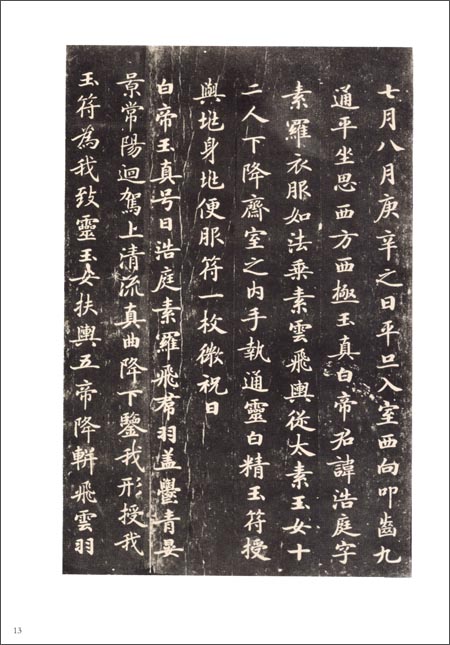 七月八月庚辛之日平旦入室西向叩齒九
通平坐思西方西極玉真白帝君諱浩庭字
素羅衣服如法乘素雲飛輿從太素玉女十
二人下降齋室之內手執通靈白精玉符授
與地身地便服符一枚微祝曰
白帝玉真号曰浩庭素羅飛帬羽盖欝青晏
景常陽迴駕上清流真曲降下鑒我形授我
玉符為我致靈玉女扶輿五帝降軿飛雲羽
13